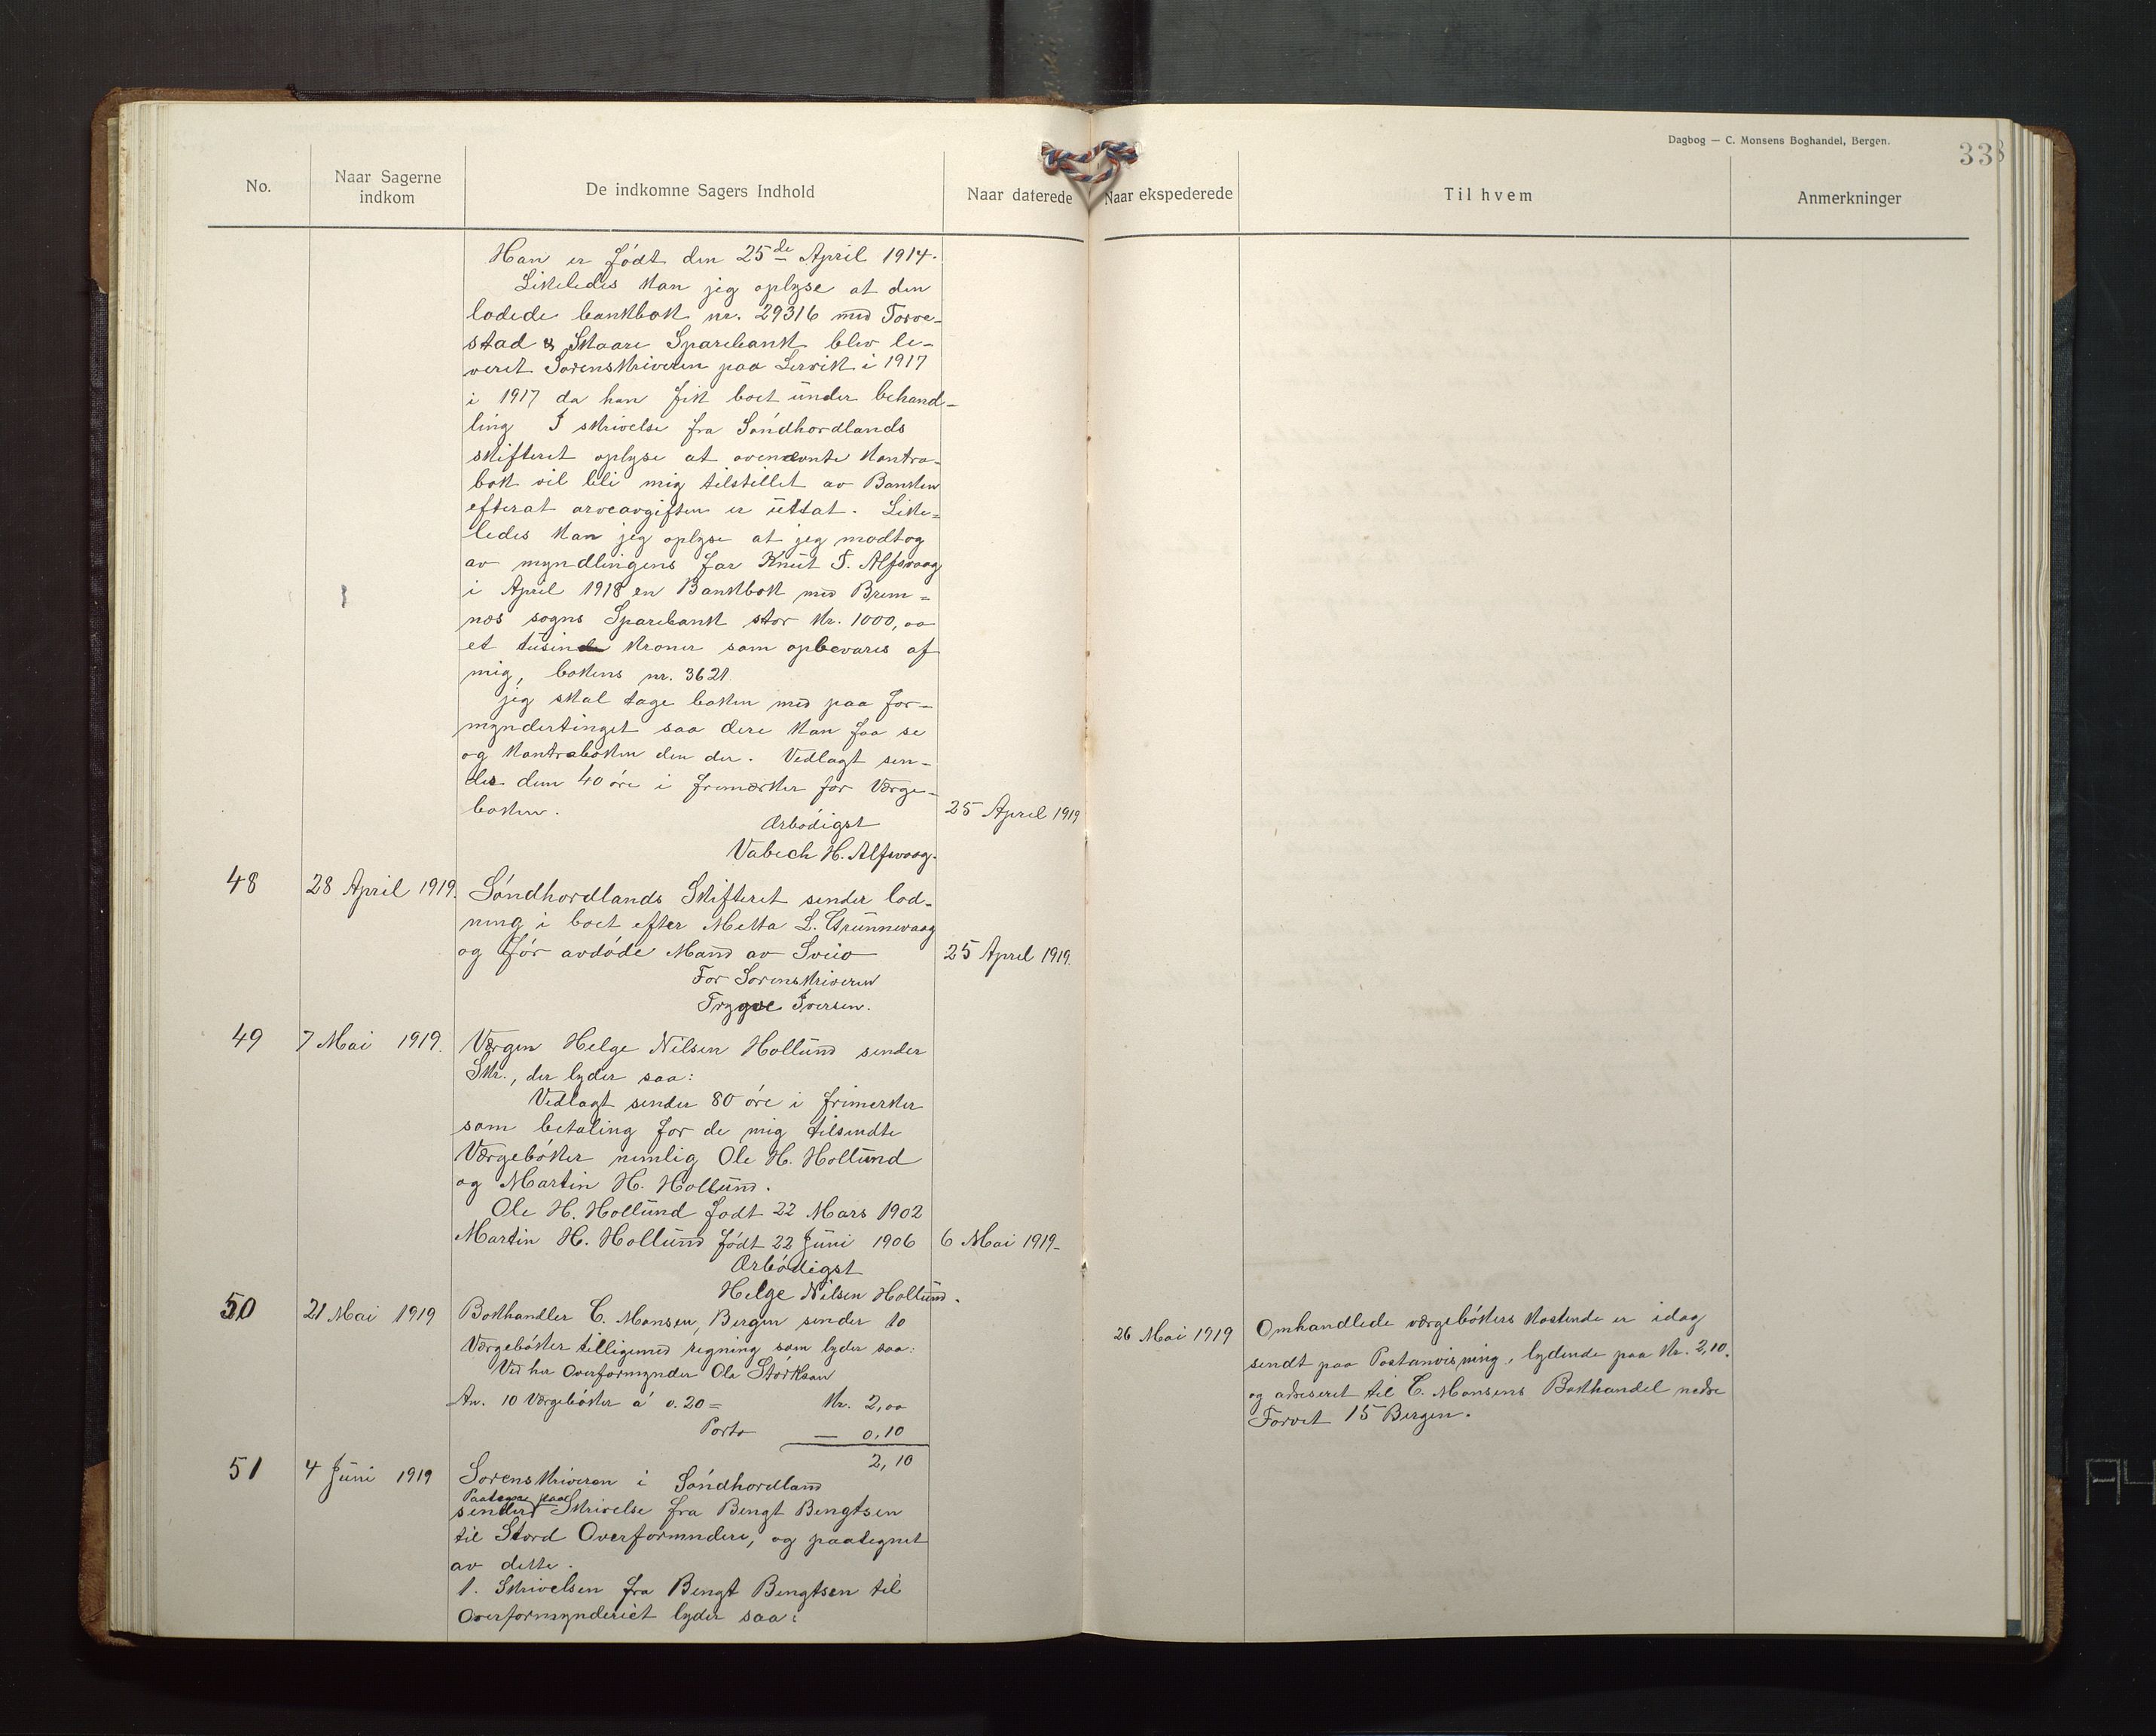 Dagbog — C. Monsens Boghandel, Bergen.
338
No.
Naar Sagerne indkom
De indkomne Sagers Indhold
Naar daterede
Naar ekspederede
Til hvem
Anmerkninger
Han er født den 25de April 1914.
Likeledes kan jeg oplyse at den
lodede bankbok nr. 29316 med Torve-
stad & Skaare Sparebank blev le-
veret Sorenskriveren paa Lervik i 1917
i 1917 da han fik boet under behand-
ling I skrivelse fra Søndhordlands
skifteret oplyse at ovennævnte kontra-
bok vil bli mig tilstillet av Banken
efterat arveavgiften er uttat. Like-
ledes kan jeg oplyse at jeg modtog
av myndlingens far Knut T. Alfsvaag
i April 1918 en Bankbok med Brem-
nes sogns Sparebank stor kr. 1000,00
et tusinde kroner som opbevares af
mig, bokens nr. 3621.
jeg skal tage boken med paa for-
myndertinget saa dere kan faa se
og kontraboken den der. Vedlagt sen-
des dem 40 øre i frimærker for Værge-
boken.
25 April 1919
Ærbødigst
Vabech H. Alfsvaag.
48 28 April 1919. Søndhordlands Skifteret sender lod-
ning i boet efter Metta L. Grunnevaag
og før avdøde Mand av Sveio
25 April 1919.
For Sorenskriveren
Trygve Iversen.
49 7 Mai 1919. Værgen Helge Nilsen Hollund sender
Skr., der lyder saa:
Vedlagt sender 80 øre i frimerker
som betaling for de mig tilsendte
Værgebøker nemlig Ole H. Hollund
og Martin H. Hollund.
Ole H. Hollund født 22 Mars 1902
Martin H. Hollund født 22 Juni 1906
6 Mai 1919-
Ærbødigst
Helge Nilsen Hollund.
50 21 Mai 1919 Bokhandler C. Monsen, Bergen sender 10
Værgebøker tilligemed regning som lyder saa:
Ved hr Overformynder Ola Størkson
An. 10 Værgebøker á 0.20 = Kr. 2,00
Porto — 0,10
2,10
26 Mai 1919 Omhandlede værgebøkers kostende er idag
sendt paa Postanvisning, lydende paa Kr. 2,10.
og adreseret til C. Monsens Bokhandel nedre
Torvet 15 Bergen.
51 4 Juni 1919 Sorenskriveren i Søndhordland
Paategne paa
sender Skrivelse fra Bengt Bengtsen
til Stord Overformndere, og paategnet
av dette.
1. Skrivelsen fra Bengt Bengtsen til
Overformynderiet lyder saa: